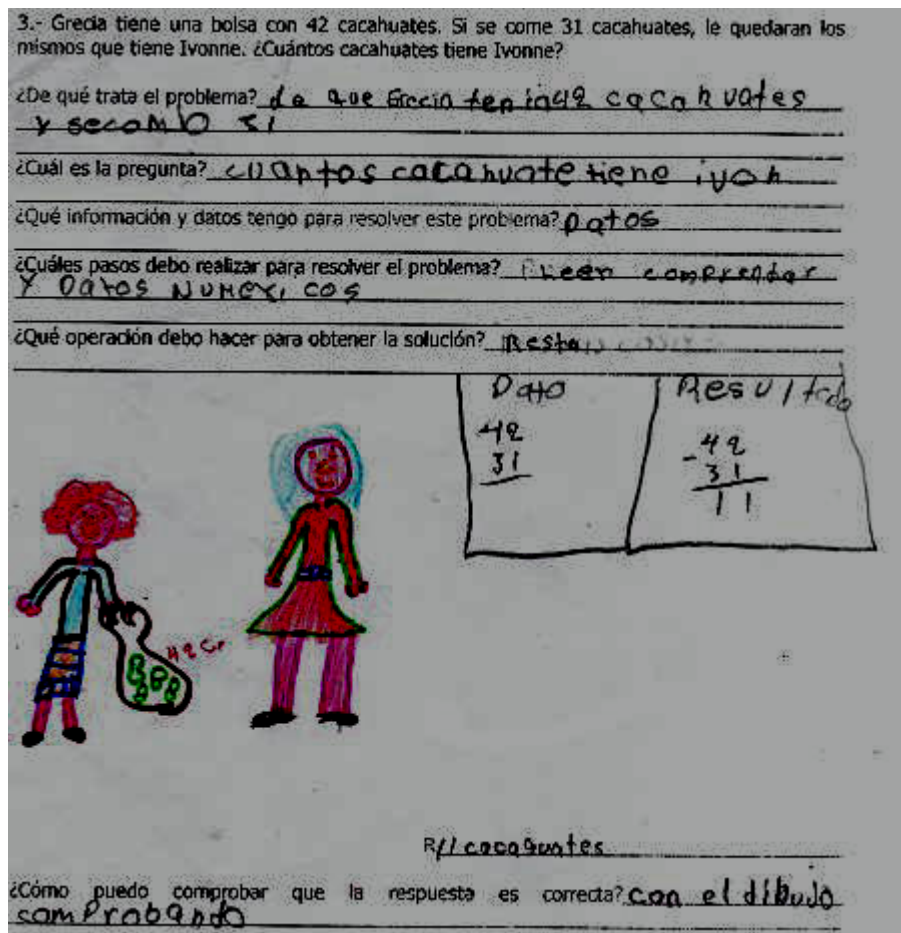 3.- Grecia tiene una bolsa con 42 cacahuates. Si se come 31 cacahuates, le quedaran los
mismos que tiene Ivonne. ¿Cuántos cacahuates tiene Ivonne?
¿De qué trata el problema? de que Grecia tenia 42 cacahuates
y secomio 31
¿Cuál es la pregunta? cuantos cacahuate tiene ivon
¿Qué información y datos tengo para resolver este problema? Datos
¿Cuáles pasos debo realizar para resolver el problema? comprender
Y Datos Numericos
¿Qué operación debo hacer para obtener la solución? Resta
Dato
42
31
Resultado
- 42
31
11
42
R 11 cacaguates
¿Cómo puedo comprobar que la respuesta es correcta? con el dibujo
comprobando